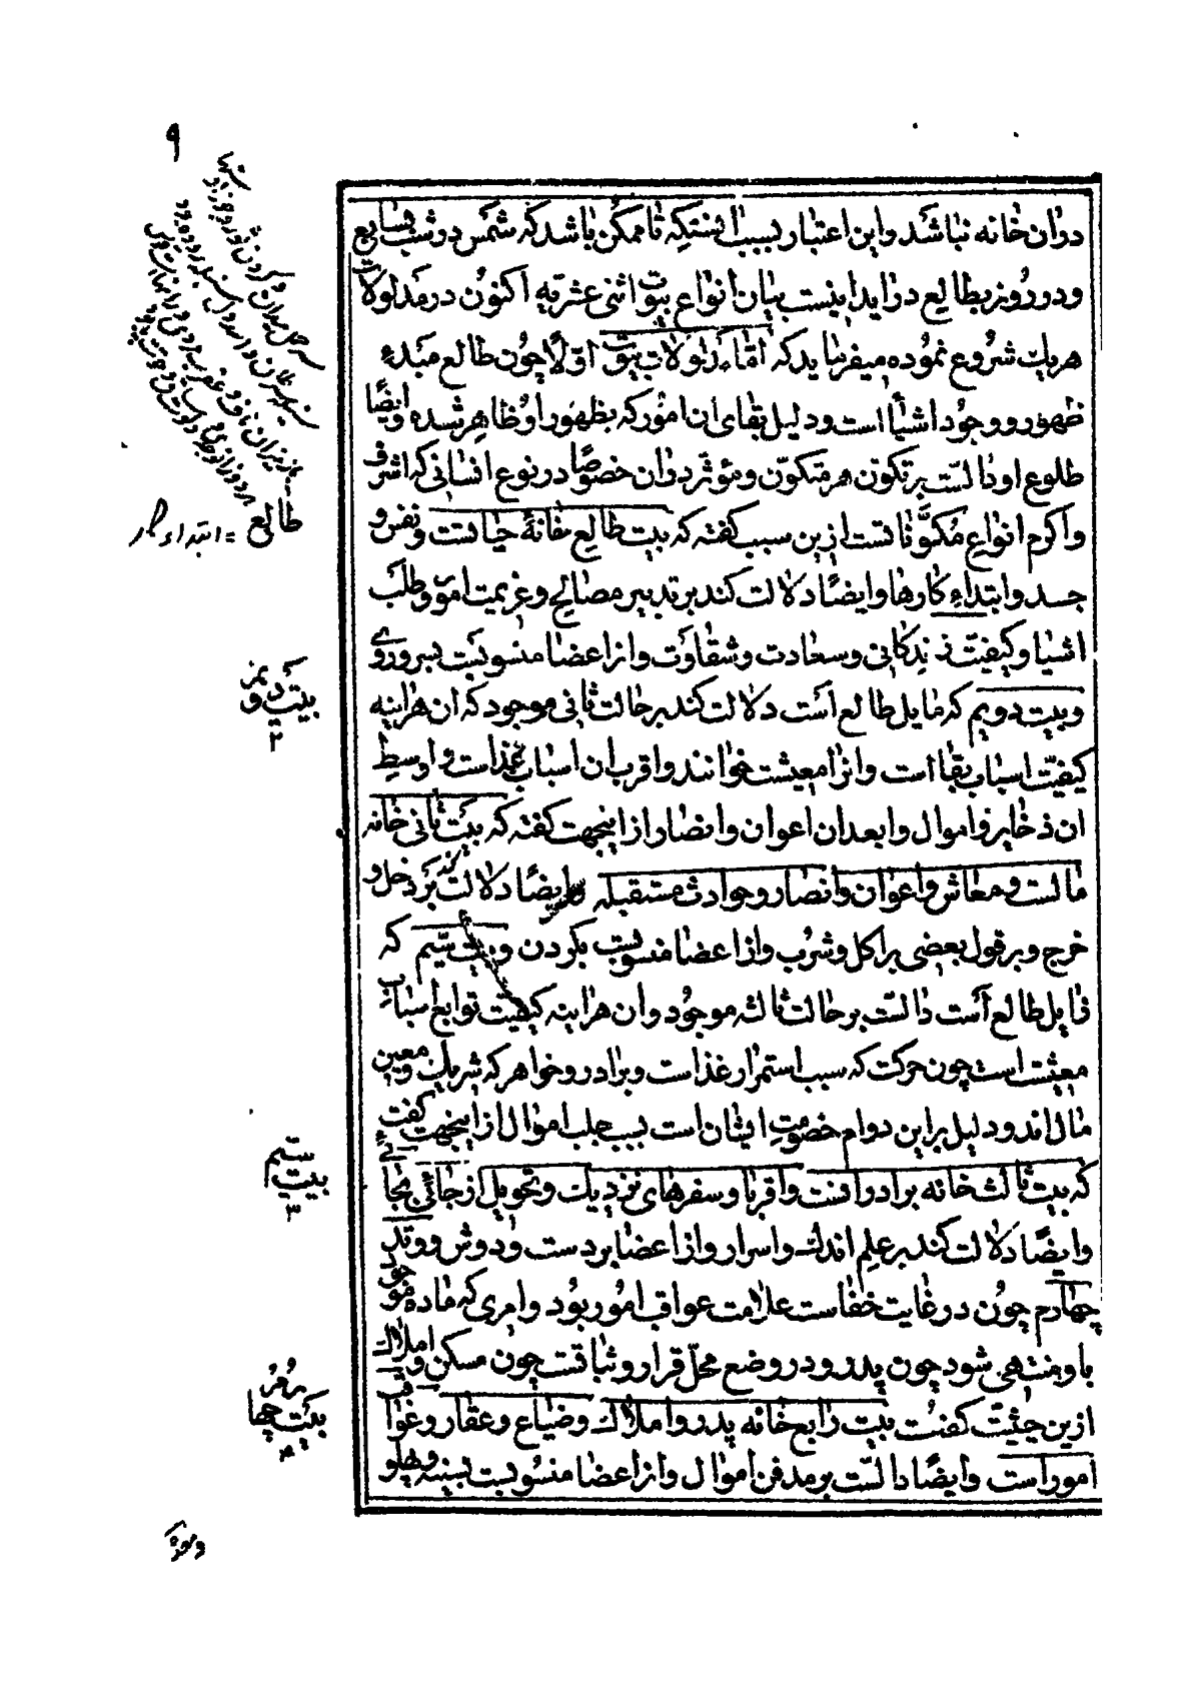 ۹
دران خانه نباشد و این اعتبار بسبب اینستکه تا ممکن باشد که شمس در شب بسابع
و در روز بطالع در اید اینست بیان انواع بیوت اثنی عشریه اکنون در مدلولات
هریک شروع نموده میفرماید که اما دلولات بیوت اولا چون طالع مبدء
ظهور و وجود اشیأ است و دلیل بقای ان امور که بظهور او ظاهر شده و ایضا
طلوع او دالست بر تکون هر متکون و مؤثر دران خصوصا در نوع انسانی که اشرف
و اکرم انواع مکونا تست ازین سبب کفته که بیت طالع خانهٔ حیاتست و نفس و
جسد و ابتداء کارها و ایضا دلالت کند بر تدبیر مصالح و عزیمت امور و طلب
اشیا و کیفیت زندکانی و سعادت و شقاوت و از اعضا منسوبست بسر و روی
و بیت دویم که مایل طالع است دلالت کند بر حالت ثانی موجود که ان هراینه
کیفیت اسباب بقا است و انرا معیشت خوانند و اقرب ان اسباب غذاست و اوسط
ان ذخایر و اموال و ابعد ان اعوان و انصار از اینجهت کفته که بیت ثانی خانه
مالست و معاش و اعوان و انصار و حوادث مستقبله و ایضا دلالت کند بر دخل و
خرج و بر قول بعضی بر اکل و شرب و از اعضا منسوبست بکردن و بیت سیم که
زایل طالع است دالست بر حالت ثالثه موجود و ان هراینه کیفیت توابع اسباب
معیشت است چون حرکت که سبب استمرار غذاست و برادر و خواهر که شریک و معین
مال اند و دلیل بر این دوام خصومت ایشان است بسبب جلب اموال از اینجهت کفت
که بیت ثالث خانه برادرانست و اقربا و سفرهای نزدیک و تحویل از جائی بجائی
و ایضا دلالت کند بر علم اندک و اسرار و از اعضا بر دست و دوش و وتد
چهارم چون در غایت خفاست علامت عواقب امور بود و امری که ماده موجود
باو منتهی شود چون پدر و در وضع محل قرار و ثباتست چون مسکن و املاک
ازین حیثیت کفت بیت رابع خانه پدر و املاک و ضیاع و عقار و عواقب
امور است و ایضا دالست بر مدفن اموال و از اعضا منسوبست بسینه و پهلو
طالع = ابتداء
بیت دویم
۲
بیت سیم
۳
بیت چها
۴